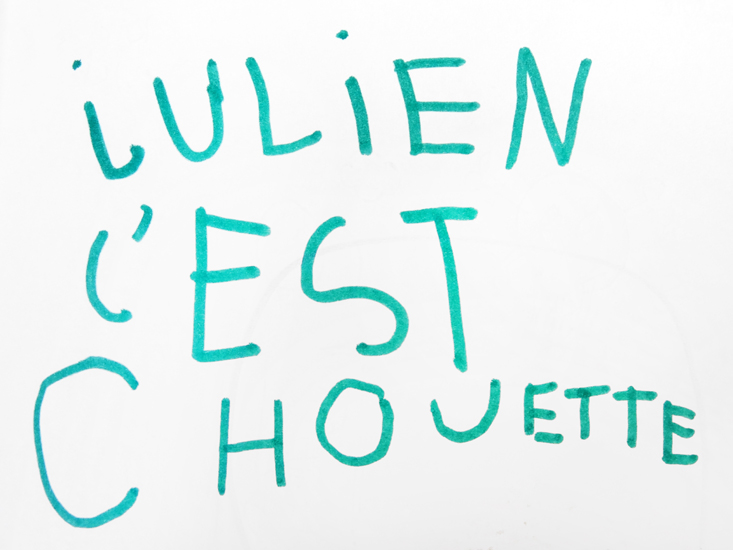 jULiEN
C'EST
CHOUETTE